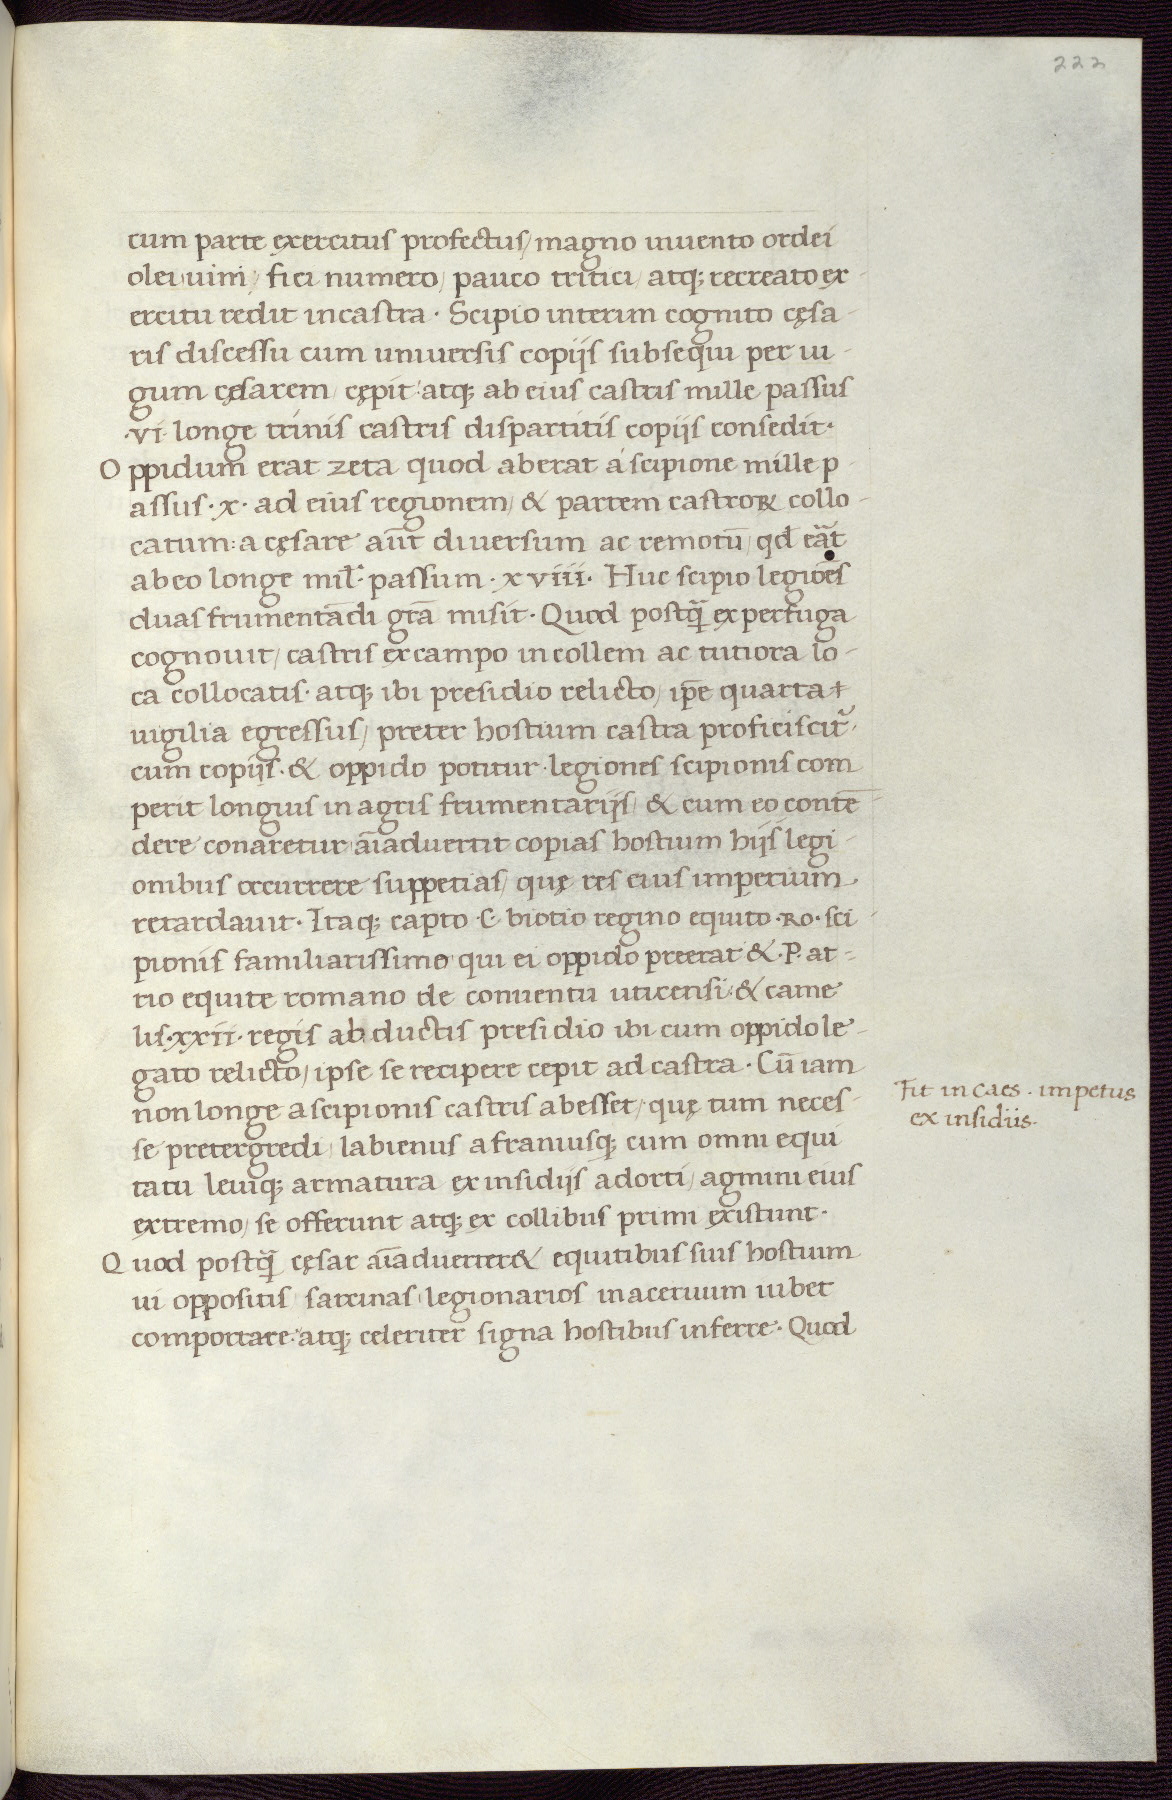 222
cum parte exercitus profectus, magno inuento ordei
olei uini, fici numero, pauco tritici, atq; recreato ex-
ercitu redit in castra. Scipio interim cognito cęsa-
ris discessu cum uniuersis copijs subsequi per iu-
gum cęsarem, cępit: atq; ab eius castris mille passus
.vi. longe trinis castris dispartitis copijs consedit.
Oppidum erat zeta quod aberat á scipione mille p-
assus .x. ad eius regionem, & partem castroꝝ collo-
catum: a cęsare aut̄ diuersum ac remotū, qd̄ erāt
ab eo longe mil̄. passum .xviiii. Huc scipio legiōes
duas frumentādi gr̄a misit. Quod postq̄ ex perfuga
cognouit, castris ex campo in collem ac tutiora lo-
ca collocatis. atq; ibi presidio relicto, ip̄e quarta
uigilia egressus, preter hostium castra proficiscit̃.
cum copijs. & oppido potitur. legiones scipionis com
perit longius in agris frumentarijs, & cum eo contē-
dere conaretur, aīaduertit copias hostium hijs legi-
onibus occurrere suppetias, quę res eius imperium
retardauit. Itaq; capto .C. biotio regino equito .RO. sci-
pionis familiarissimo qui ei oppido preerat & .P. at-
rio equite romano de conuentu uticensi: & came
lis .xxii. regis abductis presidio ibi cum oppido le-
gato relicto, ipse se recipere cepit ad castra. Cū iam
non longe a scipionis castris abesset, quę tum neces-
se pretergredi, labienus afraniusq; cum omni equi
tatu leuiq; armatura ex insidijs adorti, agmini eius
extremo, se offerunt atq; ex collibus primi existunt.
Quod postq̄ cęsar aīaduerter& equitibus suis hostium
ui oppositis sarcinas legionarios in aceruum iubet
comportare: atq; celeriter signa hostibus inferre. Quod
Fit in Caes. impetus
ex insidiis.